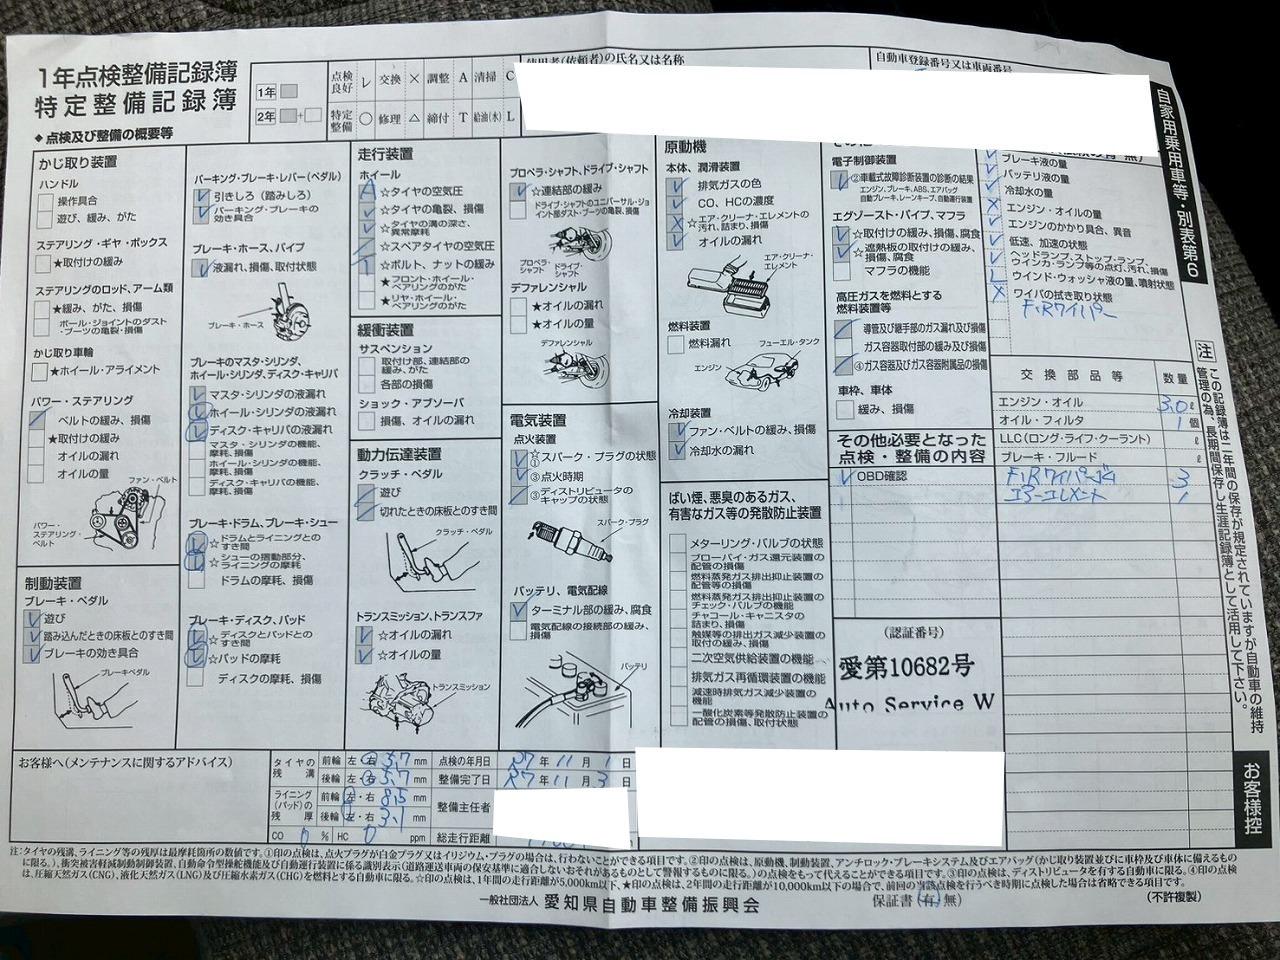 1年点検整備記録簿
特定整備記録簿
1年
2年 +
点検良好 レ 交換 × 調整 A 清掃 C
特定整備 ○ 修理 △ 締付 T 給油(水) L
使用者(依頼者)の氏名又は名称
自動車登録番号又は車両番号
自家用乗用車等・別表第6
◆点検及び整備の概要等
かじ取り装置
ハンドル
操作具合
遊び、緩み、がた
ステアリング・ギヤ・ボックス
★取付けの緩み
ステアリングのロッド、アーム類
★緩み、がた、損傷
ボール・ジョイントのダスト・ブーツの亀裂、損傷
かじ取り車輪
★ホイール・アライメント
パワー・ステアリング
ベルトの緩み、損傷
★取付けの緩み
オイルの漏れ
オイルの量
ファン・ベルト
パワー・ステアリング・ベルト
制動装置
ブレーキ・ペダル
遊び
踏み込んだときの床板とのすき間
ブレーキの効き具合
ブレーキペダル
パーキング・ブレーキ・レバー(ペダル)
引きしろ(踏みしろ)
パーキング・ブレーキの効き具合
ブレーキ・ホース、パイプ
液漏れ、損傷、取付状態
ブレーキ・ホース
ブレーキのマスタ・シリンダ、ホイール・シリンダ、ディスク・キャリパ
マスタ・シリンダの液漏れ
ホイール・シリンダの液漏れ
ディスク・キャリパの液漏れ
マスタ・シリンダの機能、摩耗、損傷
ホイール・シリンダの機能、摩耗、損傷
ディスク・キャリパの機能、摩耗、損傷
ブレーキ・ドラム、ブレーキ・シュー
☆ドラムとライニングとのすき間
☆シューの摺動部分、ライニングの摩耗
ドラムの摩耗、損傷
ブレーキ・ディスク、パッド
☆ディスクとパッドとのすき間
☆パッドの摩耗
ディスクの摩耗、損傷
走行装置
ホイール
☆タイヤの空気圧
☆タイヤの亀裂、損傷
☆タイヤの溝の深さ、異常摩耗
☆スペアタイヤの空気圧
☆ボルト、ナットの緩み
★フロント・ホイール・ベアリングのがた
★リヤ・ホイール・ベアリングのがた
緩衝装置
サスペンション
取付け部、連結部の緩み、がた
各部の損傷
ショック・アブソーバ
損傷、オイルの漏れ
動力伝達装置
クラッチ・ペダル
遊び
切れたときの床板とのすき間
クラッチ・ペダル
トランスミッション、トランスファ
☆オイルの漏れ
☆オイルの量
トランスミッション
プロペラ・シャフト、ドライブ・シャフト
☆連結部の緩み
ドライブ・シャフトのユニバーサル・ジョイント部ダスト・ブーツの亀裂、損傷
プロペラ・シャフト
ドライブ・シャフト
デファレンシャル
★オイルの漏れ
★オイルの量
デファレンシャル
電気装置
点火装置
☆①スパーク・プラグの状態
③点火時期
③ディストリビュータのキャップの状態
スパーク・プラグ
バッテリ、電気配線
ターミナル部の緩み、腐食
電気配線の接続部の緩み、損傷
バッテリ
原動機
本体、潤滑装置
排気ガスの色
CO、HCの濃度
☆エア・クリーナ・エレメントの汚れ、詰まり、損傷
オイルの漏れ
エア・クリーナ・エレメント
燃料装置
燃料漏れ
フューエル・タンク
エンジン
冷却装置
ファン・ベルトの緩み、損傷
冷却水の漏れ
ばい煙、悪臭のあるガス、有害なガス等の発散防止装置
メターリング・バルブの状態
ブローバイ・ガス還元装置の配管の損傷
燃料蒸発ガス排出抑止装置の配管等の損傷
燃料蒸発ガス排出抑止装置のチェック・バルブの機能
チャコール・キャニスタの詰まり、損傷
触媒等の排出ガス減少装置の取付の緩み、損傷
二次空気供給装置の機能
排気ガス再循環装置の機能
減速時排気ガス減少装置の機能
一酸化炭素等発散防止装置の配管の損傷、取付状態
電子制御装置
②車載式故障診断装置の診断の結果
エンジン、ブレーキ、ABS、エアバッグ
自動ブレーキ、レーンキープ、自動運行装置
エグゾースト・パイプ、マフラ
☆取付けの緩み、損傷、腐食
☆遮熱板の取付けの緩み、損傷、腐食
マフラの機能
高圧ガスを燃料とする燃料装置等
導管及び継手部のガス漏れ及び損傷
ガス容器取付部の緩み及び損傷
④ガス容器及びガス容器附属品の損傷
車枠、車体
緩み、損傷
その他必要となった点検・整備の内容
OBD確認
(認証番号)
愛第10682号
Auto Service W
ブレーキ液の量
バッテリ液の量
冷却水の量
エンジン・オイルの量
エンジンのかかり具合、異音
低速、加速の状態
ヘッドランプ、ストップ・ランプ、ウインカ・ランプ等の点灯、汚れ、損傷
ウインド・ウォッシャ液の量、噴射状態
ワイパの拭き取り状態
F・Rワイパー
交換部品等 数量
エンジン・オイル 3.0 ℓ
オイル・フィルタ 1 個
LLC(ロング・ライフ・クーラント) ℓ
ブレーキ・フルード ℓ
F・Rワイパーゴム 3
エアーエレメント 1
注 この記録簿は二年間の保存が規定されていますが自動車の維持管理の為、長期間保存し生涯記録簿として活用して下さい。
お客様控
お客様へ(メンテナンスに関するアドバイス)
タイヤの残溝 前輪 左・右 5.7 mm
後輪 左・右 5.7 mm
ライニング(パッド)の残厚 前輪 左・右 8.5 mm
後輪 左・右 3.1 mm
CO 0 % HC 0 ppm
点検の年月日 R7年 11月 1日
整備完了日 R7年 11月 3日
整備主任者
総走行距離
注:タイヤの残溝、ライニング等の残厚は最摩耗箇所の数値です。①印の点検は、点火プラグが白金プラグ又はイリジウム・プラグの場合は、行わないことができる項目です。②印の点検は、原動機、制動装置、アンチロック・ブレーキシステム及びエアバッグ(かじ取り装置並びに車枠及び車体に備えるものに限る。)、衝突被害軽減制動制御装置、自動命令型操舵機能及び自動運行装置に係る識別表示(道路運送車両の保安基準に適合しないおそれがあるものとして警報するものに限る。)の点検をもって代えることができる項目です。③印の点検は、ディストリビュータを有する自動車に限る。④印の点検は、圧縮天然ガス(CNG)、液化天然ガス(LNG)及び圧縮水素ガス(CHG)を燃料とする自動車に限る。☆印の点検は、1年間の走行距離が5,000km以下、★印の点検は、2年間の走行距離が10,000km以下の場合で、前回の当該点検を行うべき時期に点検した場合は省略できる項目です。
一般社団法人 愛知県自動車整備振興会
保証書(有・無)
(不許複製)